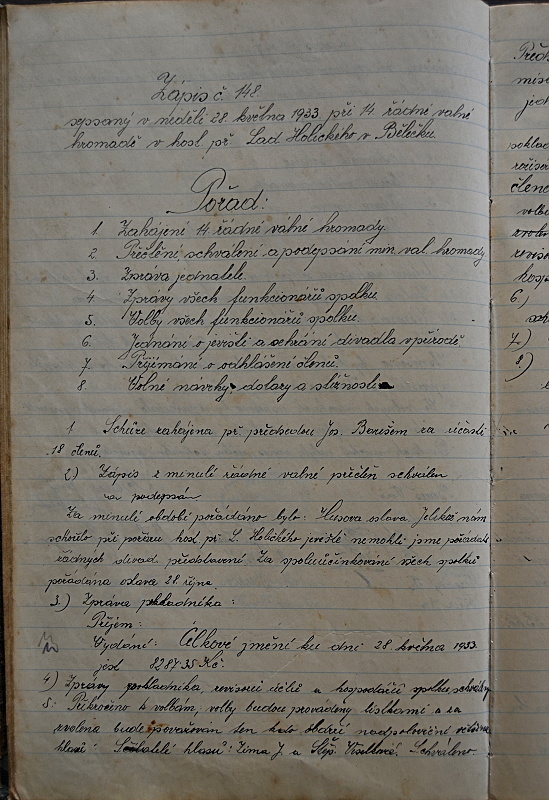 Zápis č. 148.
sepsaný v neděli 28. května 1933 při 14. řádné valné
hromadě v host. př. Lad Holického v Bělečku.
Pořad:
1. Zahájení 14 řádné válné hromady.
2. Přečtění, schválení a podepsání min. val. hromady
3. Zpráva jednatele.
4 Zprávy všech funkcionářů spolku.
5. Volby všech funkcionářů spolku.
6. Jednání o jevišti a sehrání divadla v přírodě
7. Přijímání o odhlášení členů.
8. Volné navrhy, dotazy a stížnosti
1 Schůze zahájena př. předsedou Jos. Barešem za účasti
18 členů.
2.) Zápis z minulí řádné valné přečtěn schválen
a podepsán
Za minulí období pořádáno bylo: Husova oslava. Jelikož nám
shořelo při požáru host. př. L. Holického jeviště nemohli jsme pořádat
řádných divad. představení. Za spoluúčinkování všech spolků
pořádána oslava 28. října
3.) Zpráva pokladníka:
Příjem:
Vydání: Celkové jmění ku dni 28 května 1933.
jest 8287.35 Kč.
4) Zprávy pokladníka, revisorů účtů a hospodářů spolku schváleny
5: Přikročeno k volbám, volby budou prováděny lístkami a za
zvolena bude považován ten kdo obdrží nadpoloviční většinu
hlasů. Sčitatelé hlasů: Zima J. a Stěp. Schváleno
Před
jed
poklad
členů
volbu
hosp
6.)
7.)
8.)